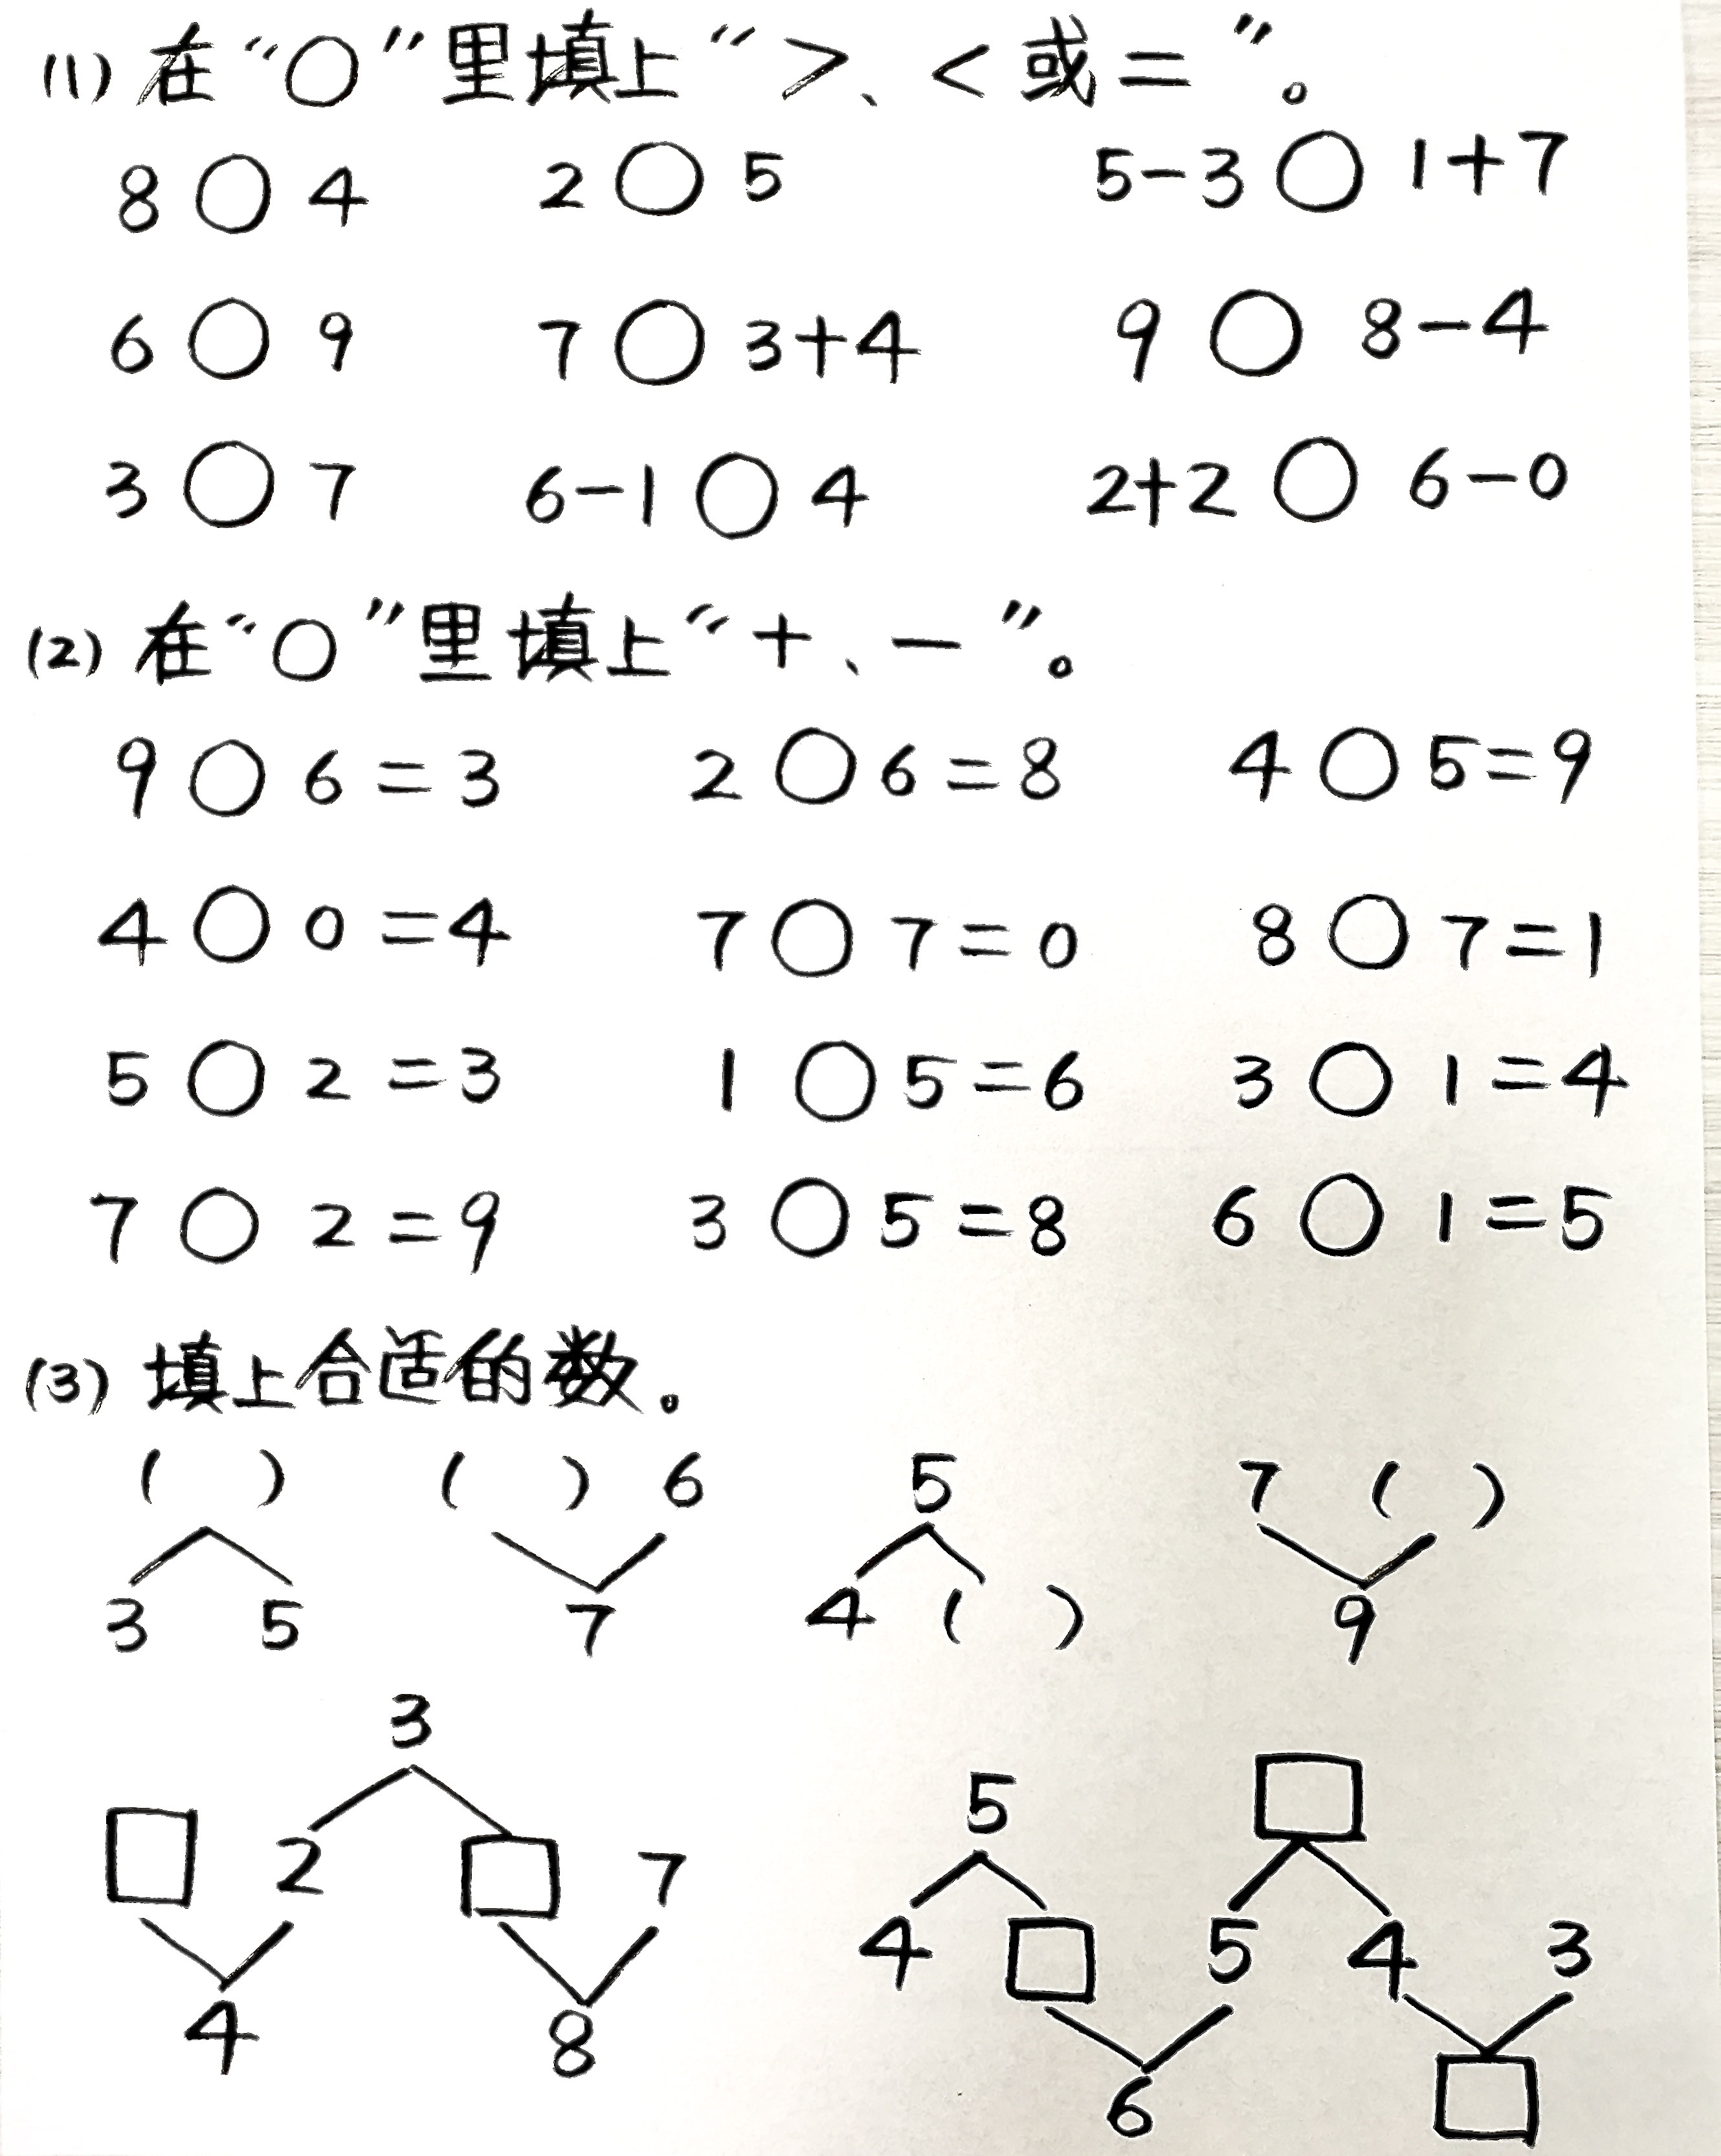 (1) 在“○”里填上“>、< 或 = ”。
8 ○ 4 2 ○ 5 5-3 ○ 1+7
6 ○ 9 7 ○ 3+4 9 ○ 8-4
3 ○ 7 6-1 ○ 4 2+2 ○ 6-0
(2) 在“○”里填上“+、-”。
9 ○ 6 = 3 2 ○ 6 = 8 4 ○ 5 = 9
4 ○ 0 = 4 7 ○ 7 = 0 8 ○ 7 = 1
5 ○ 2 = 3 1 ○ 5 = 6 3 ○ 1 = 4
7 ○ 2 = 9 3 ○ 5 = 8 6 ○ 1 = 5
(3) 填上合适的数。
( ) ( ) 6 5 7 ( )
3 5 7 4 ( ) 9
3
5 □
□ 2 □ 7
4 □ 5 4 3
4 8
6 □